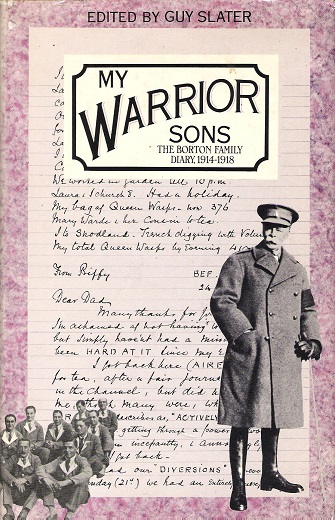 EDITED BY GUY SLATER
MY
WARRIOR
SONS
THE BORTON FAMILY
DIARY, 1914-1918
We worked in garden till 10 p.m.
Laura i church E. Had a holiday.
My bag of Queen Wasps now 376
Mary Warde i her Cousin to tea.
I to Snodland. Trench digging with Volun
My total Queen Wasps by Evening 41
From Biffy BEF
24
Dear Dad
Many thanks for yo
I'm ashamed at not having
but simply haven't had a minu
been HARD AT IT since my
I got back here (AIRE
for tea, after a fair journ
in the Channel, but did
me, though many were,
describes as, "ACTIVELY
getting through a power
in incessantly, i
get back-
had our "DIVERSIONS"
day (21st) we had an Entire